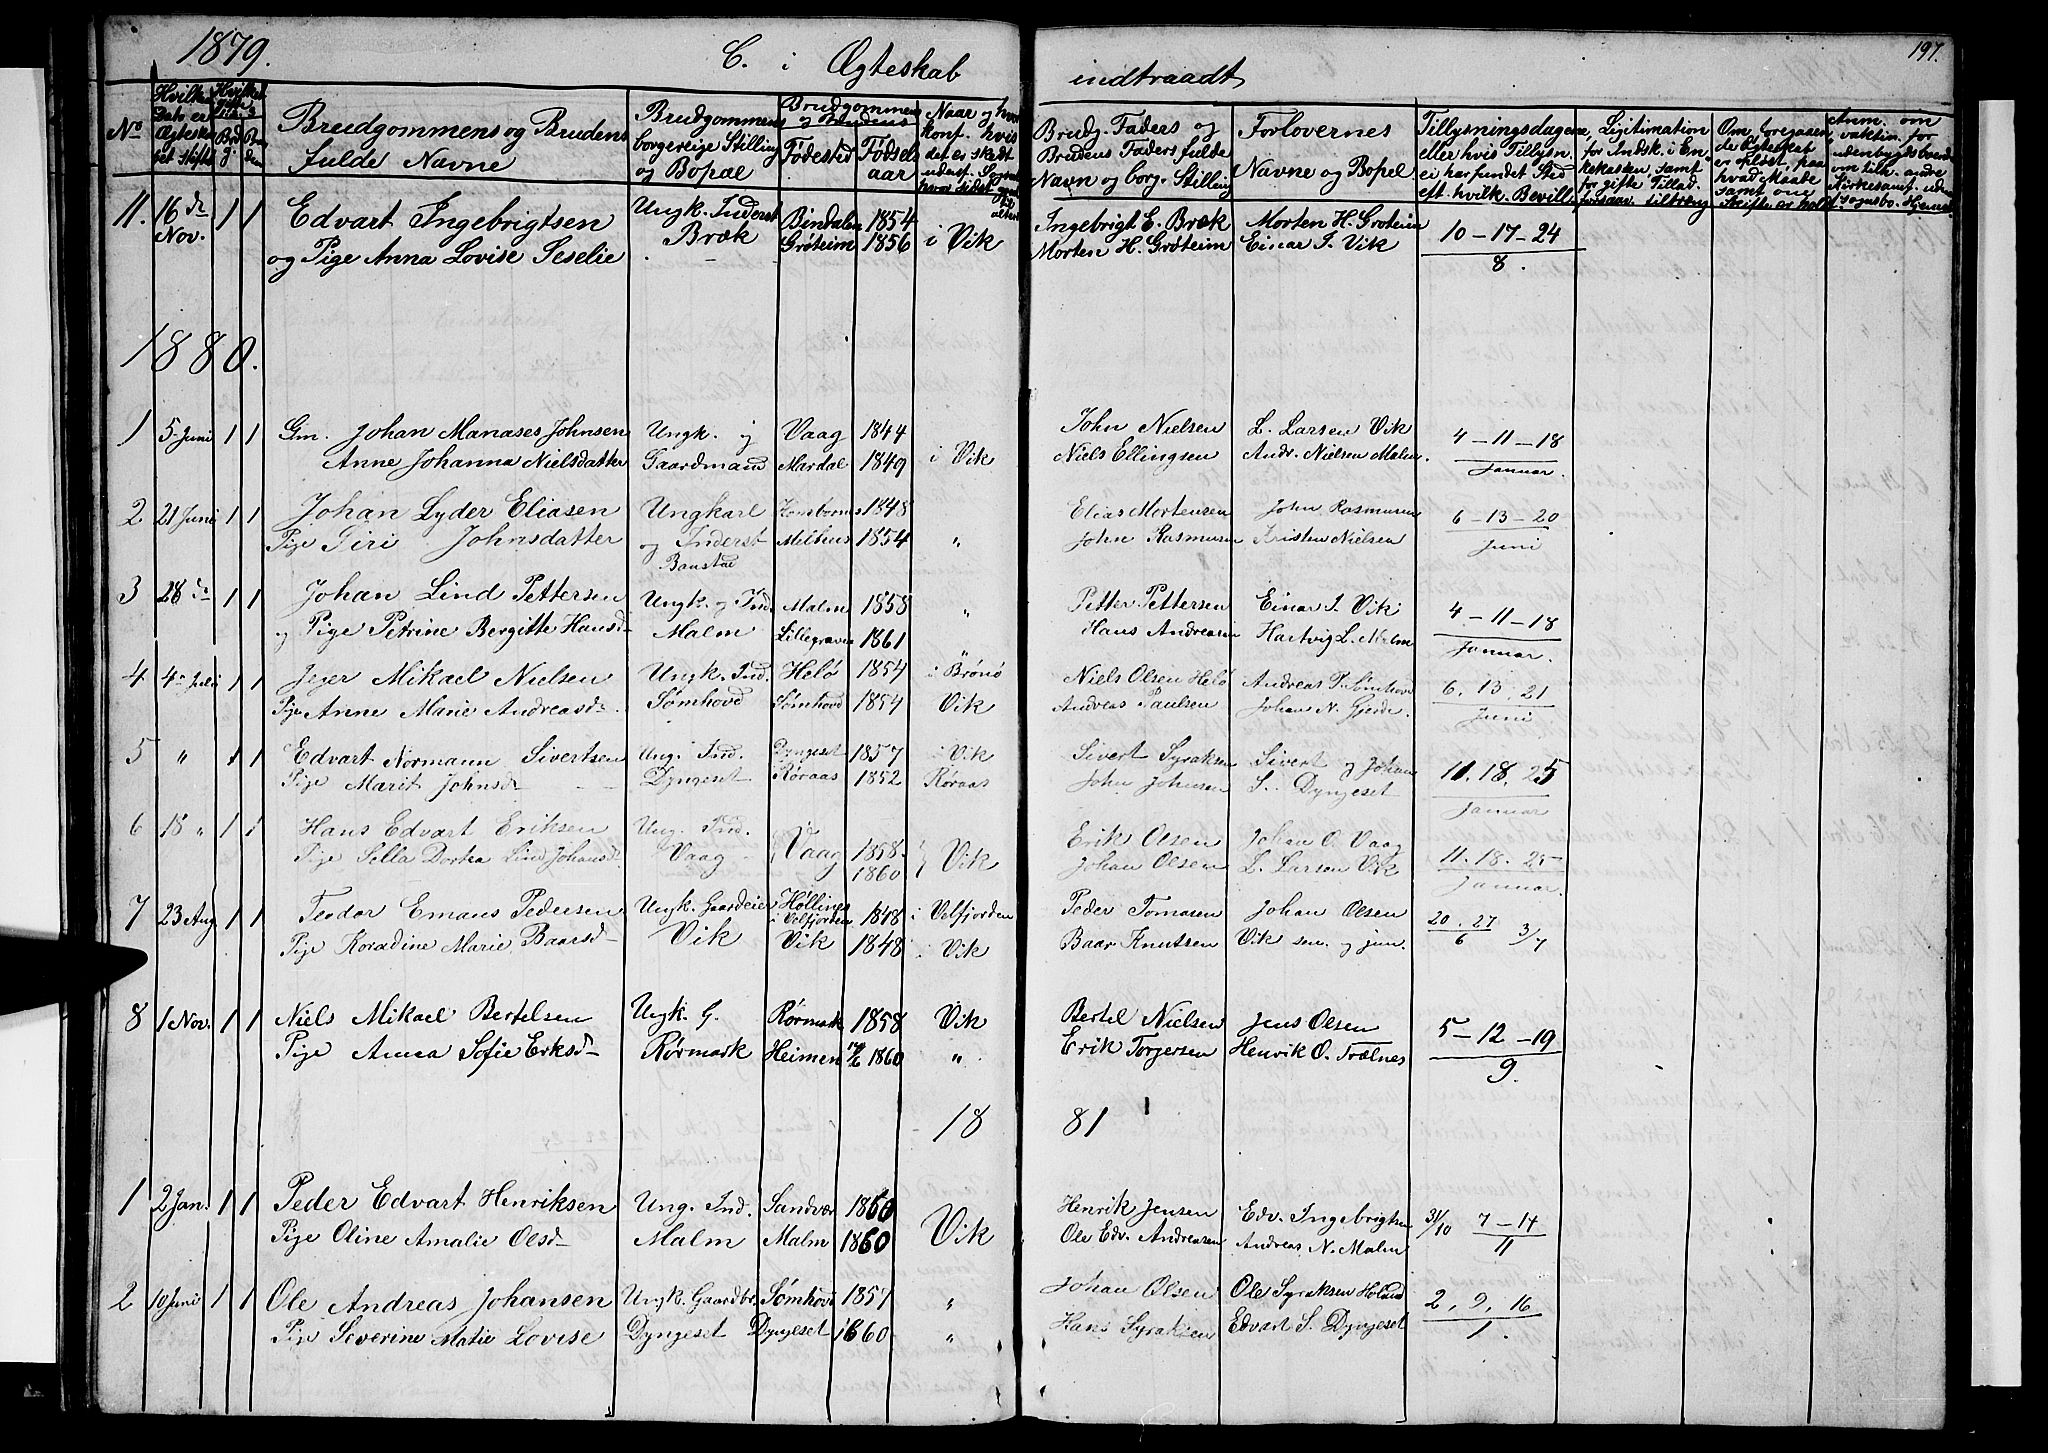 1879. C. i Ægteskab indtraadt 197.
No
Hvilken Dato er Ægteskabet stiftet
Brudgommens og Brudens fulde Navne
Brudgommens borgerlige Stilling og Bopæl
Brudgommens og Brudens
Fødested Fødselsaar
Naar og hvor konf. hvis det er skedt
Brudg. Faders og Brudens Faders fulde Navn og borg. Stilling
Forlovernes Navne og Bopæl
Tillysningsdagene, eller hvis Tillysn. ei har fundet Sted eft. hvilk. Bevill.
Legitimation for Indsk. i Enkekassen, samt for gifte Tillad.
11. 16 de Nov. 1 1 Edvart Ingebrigtsen Ungk. Inderst Bindalen 1854 i Vik Ingebrigt E. Bræk Morten H. Groteim 10-17-24
og Pige Anna Lovise Seselie Bræk Groteim 1856 Morten H. Grøteim Einar J. Vik 8.
1880.
1 5 Juni 1 1 Gm. Johan Manases Johnsen Ungk. og Vaag 1844 John Nielsen L. Larsen Vik 4-11-18
Anne Johanna Nielsdatter Gaardmand Mardal 1849 i Vik Niels Ellingsen Andr. Nielsen Malm. Januar.
2 21 Juni 1 1 Johan Lyder Eliasen Ungkarl 1848 Elias Mortensen John Rasmusen 6-13-20
Pige Siri Johnsdatter og Inderst Melhus 1854 " John Rasmusen Kristen Nielsen Juni
Bonstad
3 28 de 1 1 Johan Lind Pettersen Ungk. og Ind. Malm 1858 " Petter Pettersen Einar J. Vik 4-11-18
og Pige Petrine Bergitte Hansd- Malm Lillegraven 1861 Hans Andreasen Hartvig L. Malm Januar.
4 4 Juli 1 1 Jeger Mikael Nielsen Ungk. Ind. Helø 1854 i Brønø Niels Olsen Helø Andreas P. Sømhovd 6. 13. 21
Pige Anne Marie Andreasd- Sømhovd Sømhovd 1854 Vik Andreas Paulsen Johan N. Gjerde. Juni
5 " 1 1 Edvart Normann Sivertsen Ung. Ind. Dyngeset 1857 i Vik Sivert Syraksen Sivert og Johan 11. 18. 25
Pige Marit Johnsd- Dyngeset Røraas 1852 Røraas John Johnsen S. Dyngeset Januar
6 18 " 1 1 Hans Edvart Eriksen Ung. Ind. Vaag 1858. Vik Erik Olsen Johan O. Vaag 11. 18. 25
Pige Sella Dortea Lind Johansd- Vaag 1860 Johan Olsen L. Larsen Vik Januar.
7 23 Aug. 1 1 Teodor Emans Pedersen Ungk. Gaardeier Høllines i Velfjorden 1848 i Velfjorden Peder Tomasen Johan Olsen 20. 27 / 6 3/7
Pige Koradine Marie Baarsd- Vik Vik 1848 Vik Baar Knutsen Vik sen. og jun.
8 1 Nov. 1 1 Niels Mikael Bertelsen Ungk. G. Rørmark 1858 Vik Bertel Nielsen Jens Olsen 5-12-19
Pige Anna Sofie Eriksd- Rørmark Heimen 1860 " Erik Torgersen Henrik O. Trælnes 9.
18 81
1 2 Jan. 1 1 Peder Edvart Henriksen Ung. Ind. Sandvær 1860 Vik Henrik Jensen Edv. Ingebrigtsen 31/10 7-14
Pige Oline Amalie Olsd- Malm Malm 1860 Ole Edv. Andreasen Andreas N. Malm 11
2 10 Juni 1 1 Ole Andreas Johansen Ungk. Gaardbr. Sømhovd 1857 " Johan Olsen Ole Syraksen Holand 2, 9, 16
Pige Severine Matie Lovise Dyngeset Dyngeset 1860 " Hans Syraksen Edvart S. Dyngeset 1.